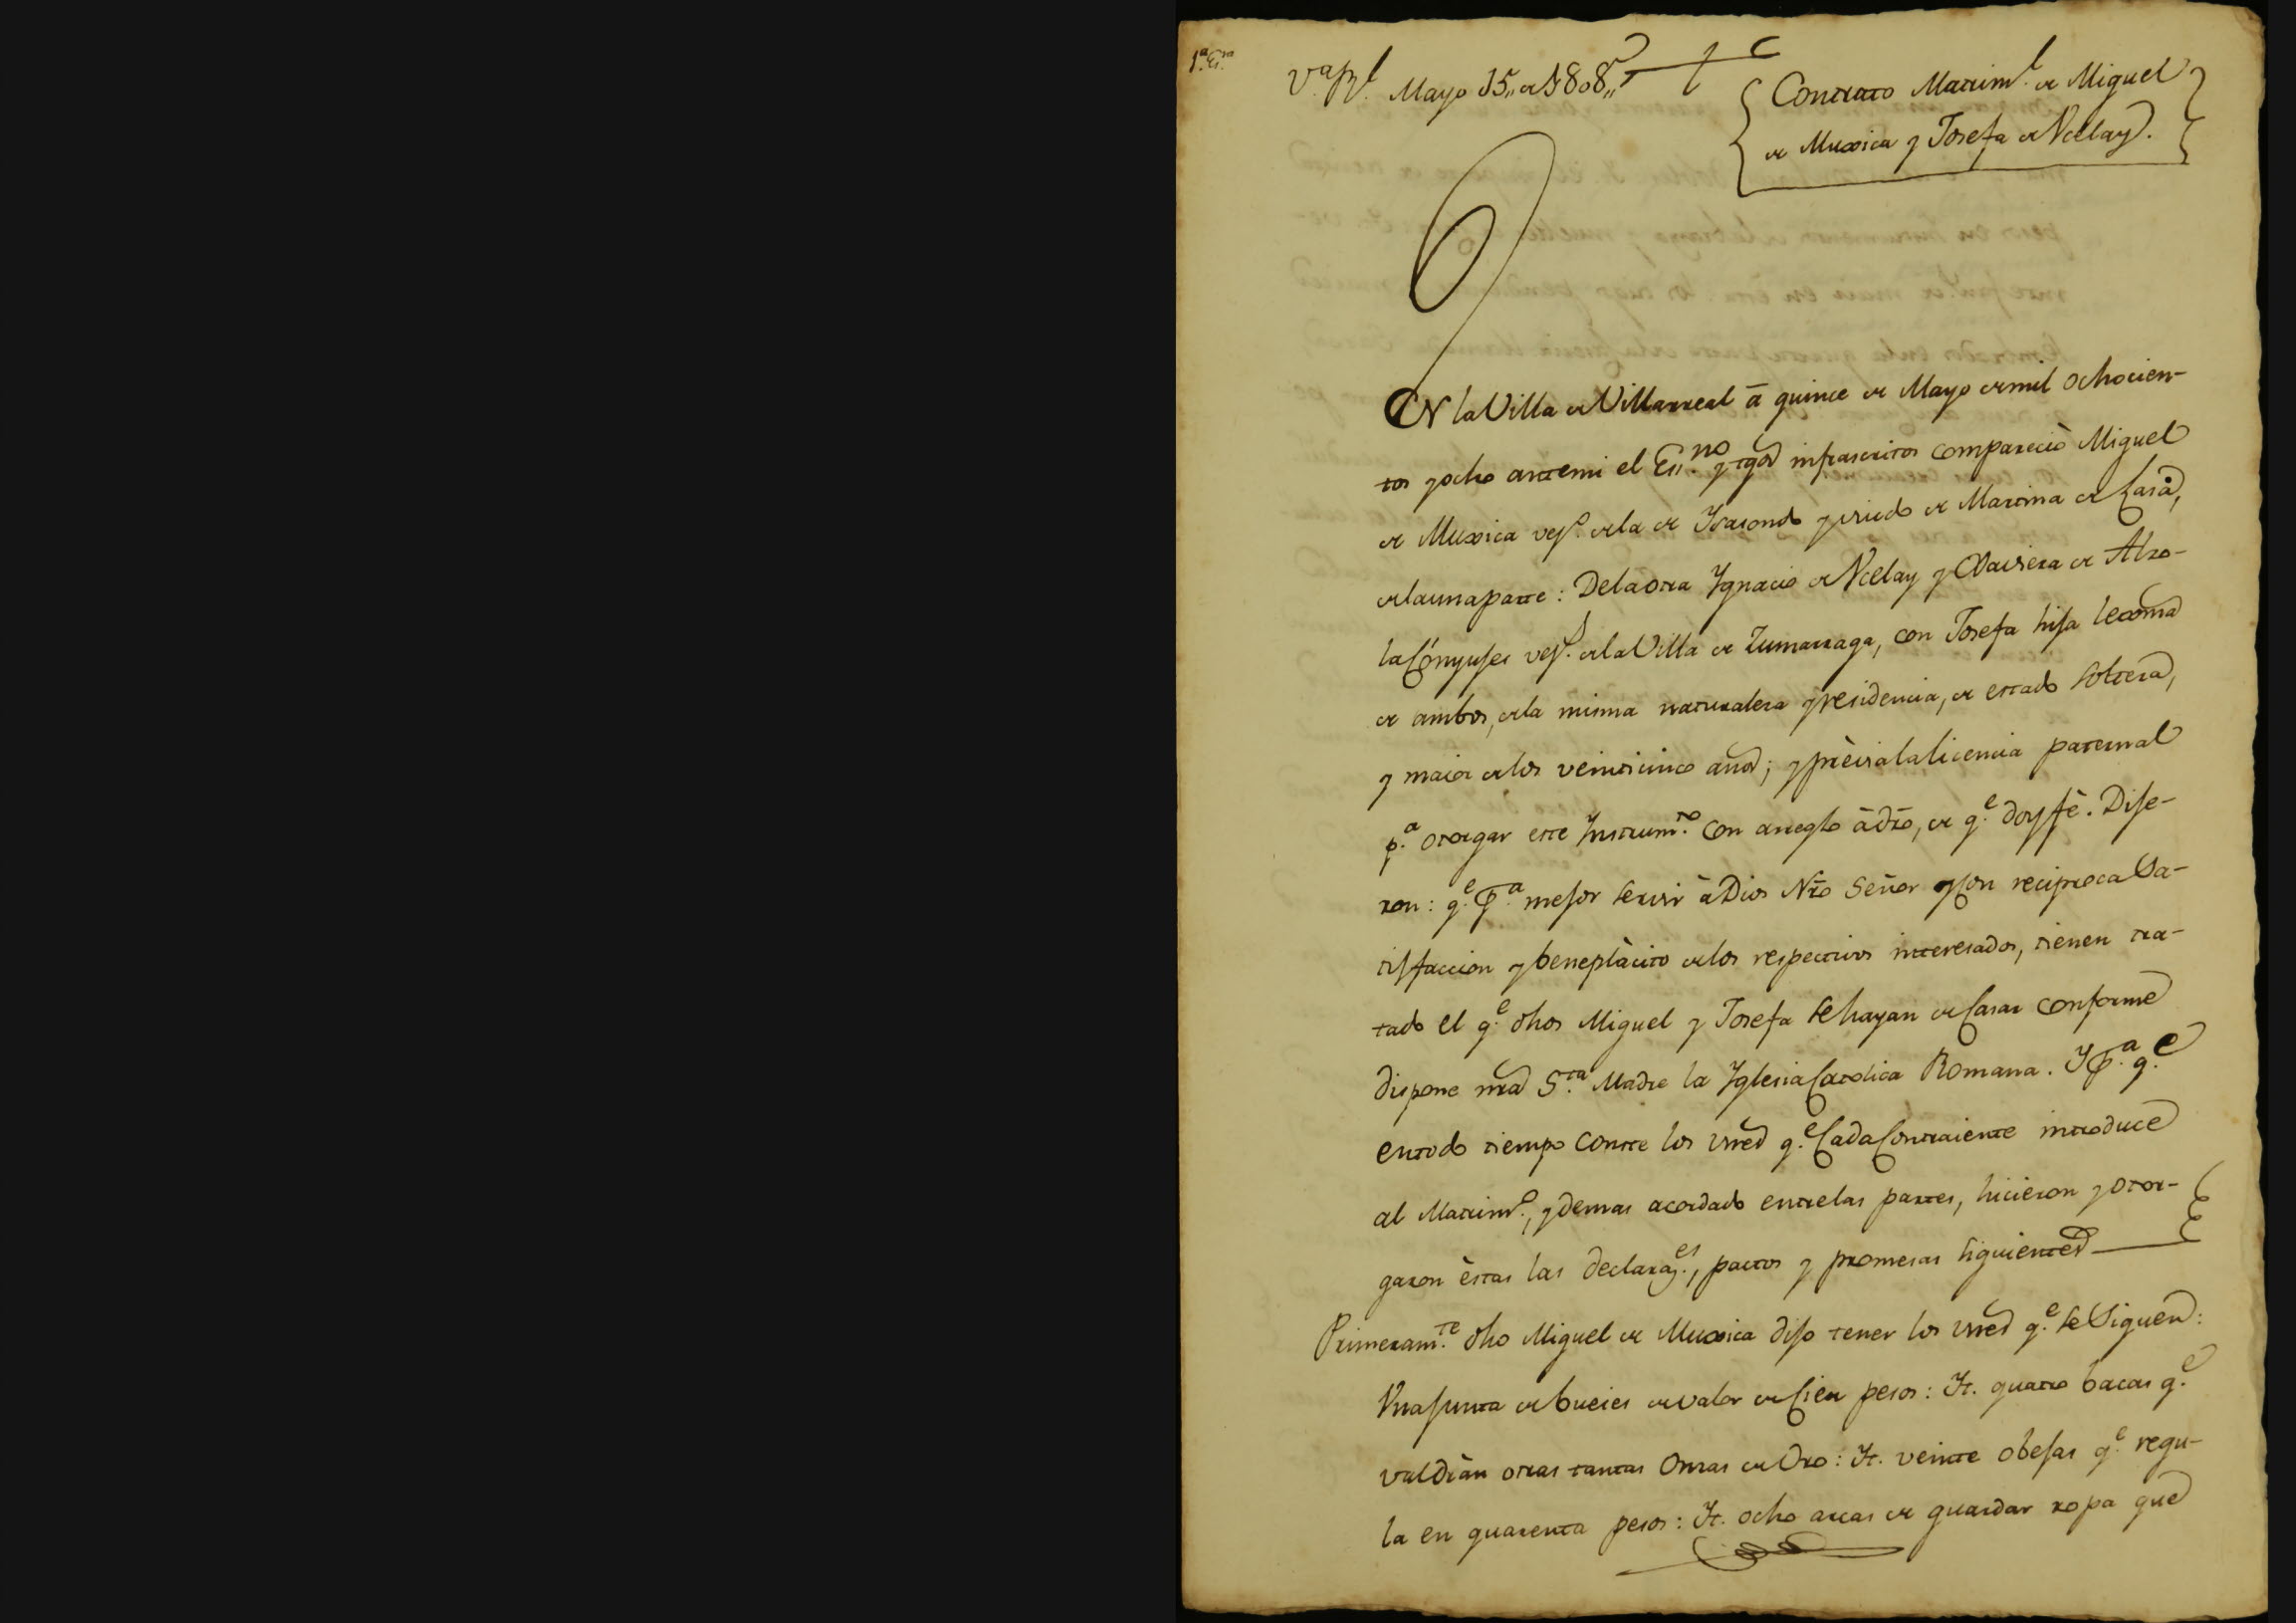 1ª Es.ra
V.ª R.l Mayo 15,, de 1808,,
Contrato Matrim.l de Miguel
de Muxica y Josefa de Vcelay.
EN la Villa de Villarreal á quince de Mayo de mil ochocien-
tos y ocho antemi el Es.no y tgos infrascritos compareciò Miguel
de Muxica vej.º de la de Ysasondo y viudo de Martina de Lasa,
de la una parte: De la otra Ygnacio de Vcelay y Xaviera de Alzo-
la Cónyujes vej.s de la Villa de Zumarraga, con Josefa hija lexma
de ambos, de la misma naturalesa y residencia, de estado soltera,
y maior de los veinticinco años; y prèvia la licencia paternal
p.ª otorgar este Ynstrum.to con arreglo à dro, de q.e doy fè. Dije-
ron: q.e p.ª mejor servir à Dios Nro Señor y con reciproca Sa-
tisfaccion y beneplàcito de los respectivos interesados, tienen tra-
tado el q.e dhos Miguel y Josefa se hayan de Casar conforme
dispone nra S.ta Madre la Yglesia Catolica Romana. Y p.ª q.e
en todo tiempo conste los vnes q.e Cada Contraiente introduce
al Matrim.º, y demas acordado entre las partes, hicieron y otor-
garon èstas las declarag.es, pactos y promesas siguientes
Primeram.te dho Miguel de Muxica dijo tener los vnes q.e se Siguen:
Vna junta de bueies de valor de Cien pesos: Yt. quatro bacas q.e
valdràn otras tantas Onzas de Oro: Yt. veinte obejas q.e regu-
la en quarenta pesos: Yt. ocho arcas de guardar ropa que